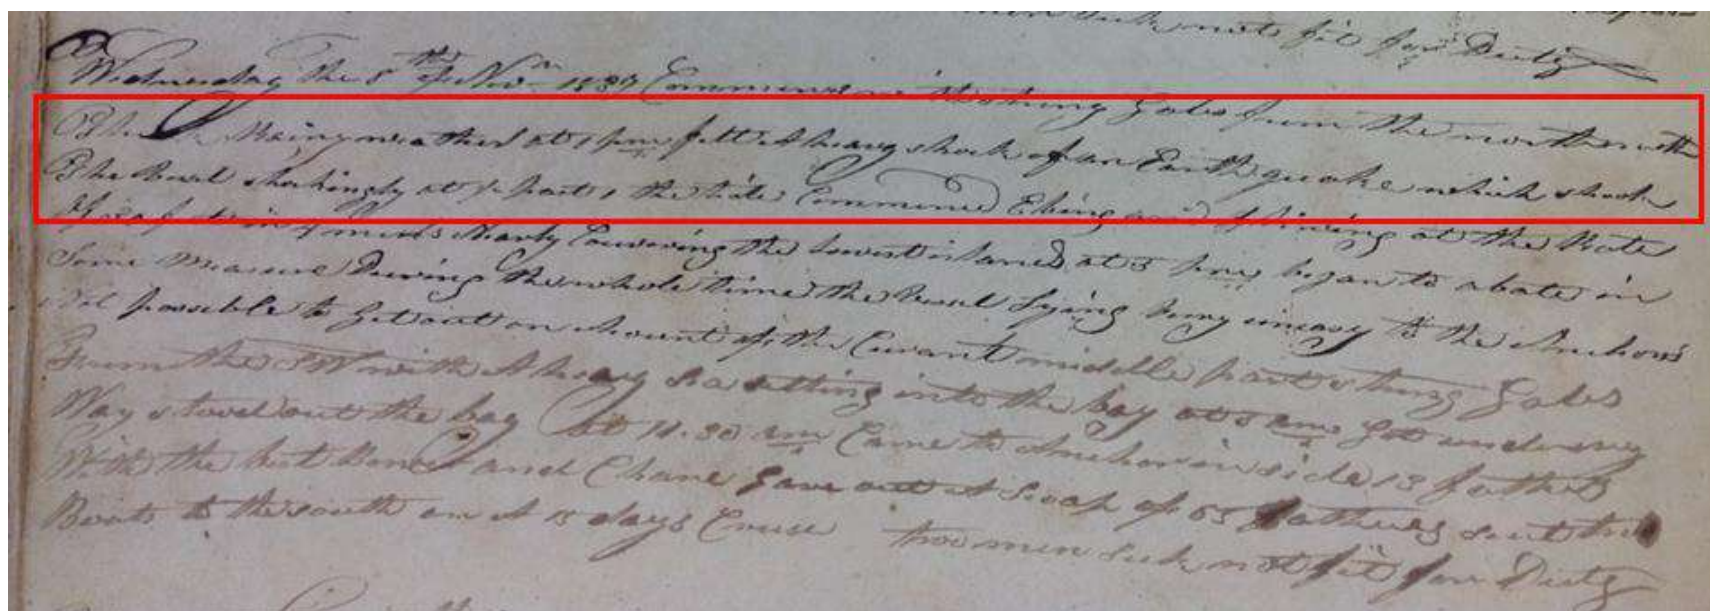 men sick not fit for Duty
Wednesday the 8th of Nov 1837 Commences with strong Gales from the north with
Thick Rainy weather at 1 pm felt A heavy shock of an Earth quake which shook
The Vesel shockingly at ½ past 1 the tide Commenced Ebing and Flowing at the Rate
of feet in 4 minits Nearly Couvering the lowest islands at 5 pm began to abate in
Some Measure During the whole time the Vesel Lying very uneasy to the Anchors
Not possible to Get out on Acount of the Curant middle part strong Gales
From the SW with A heavy Sea setting into the bay at 5 am Got underway
Way stood out the bay At 11.30 am Came to Anchor in side 13 fathes
With the best Bower and Chane Gave out A Scoap of 65 fathurs sent two
Boats to the south on A 15 days Cruise two men sick not fit for Duty